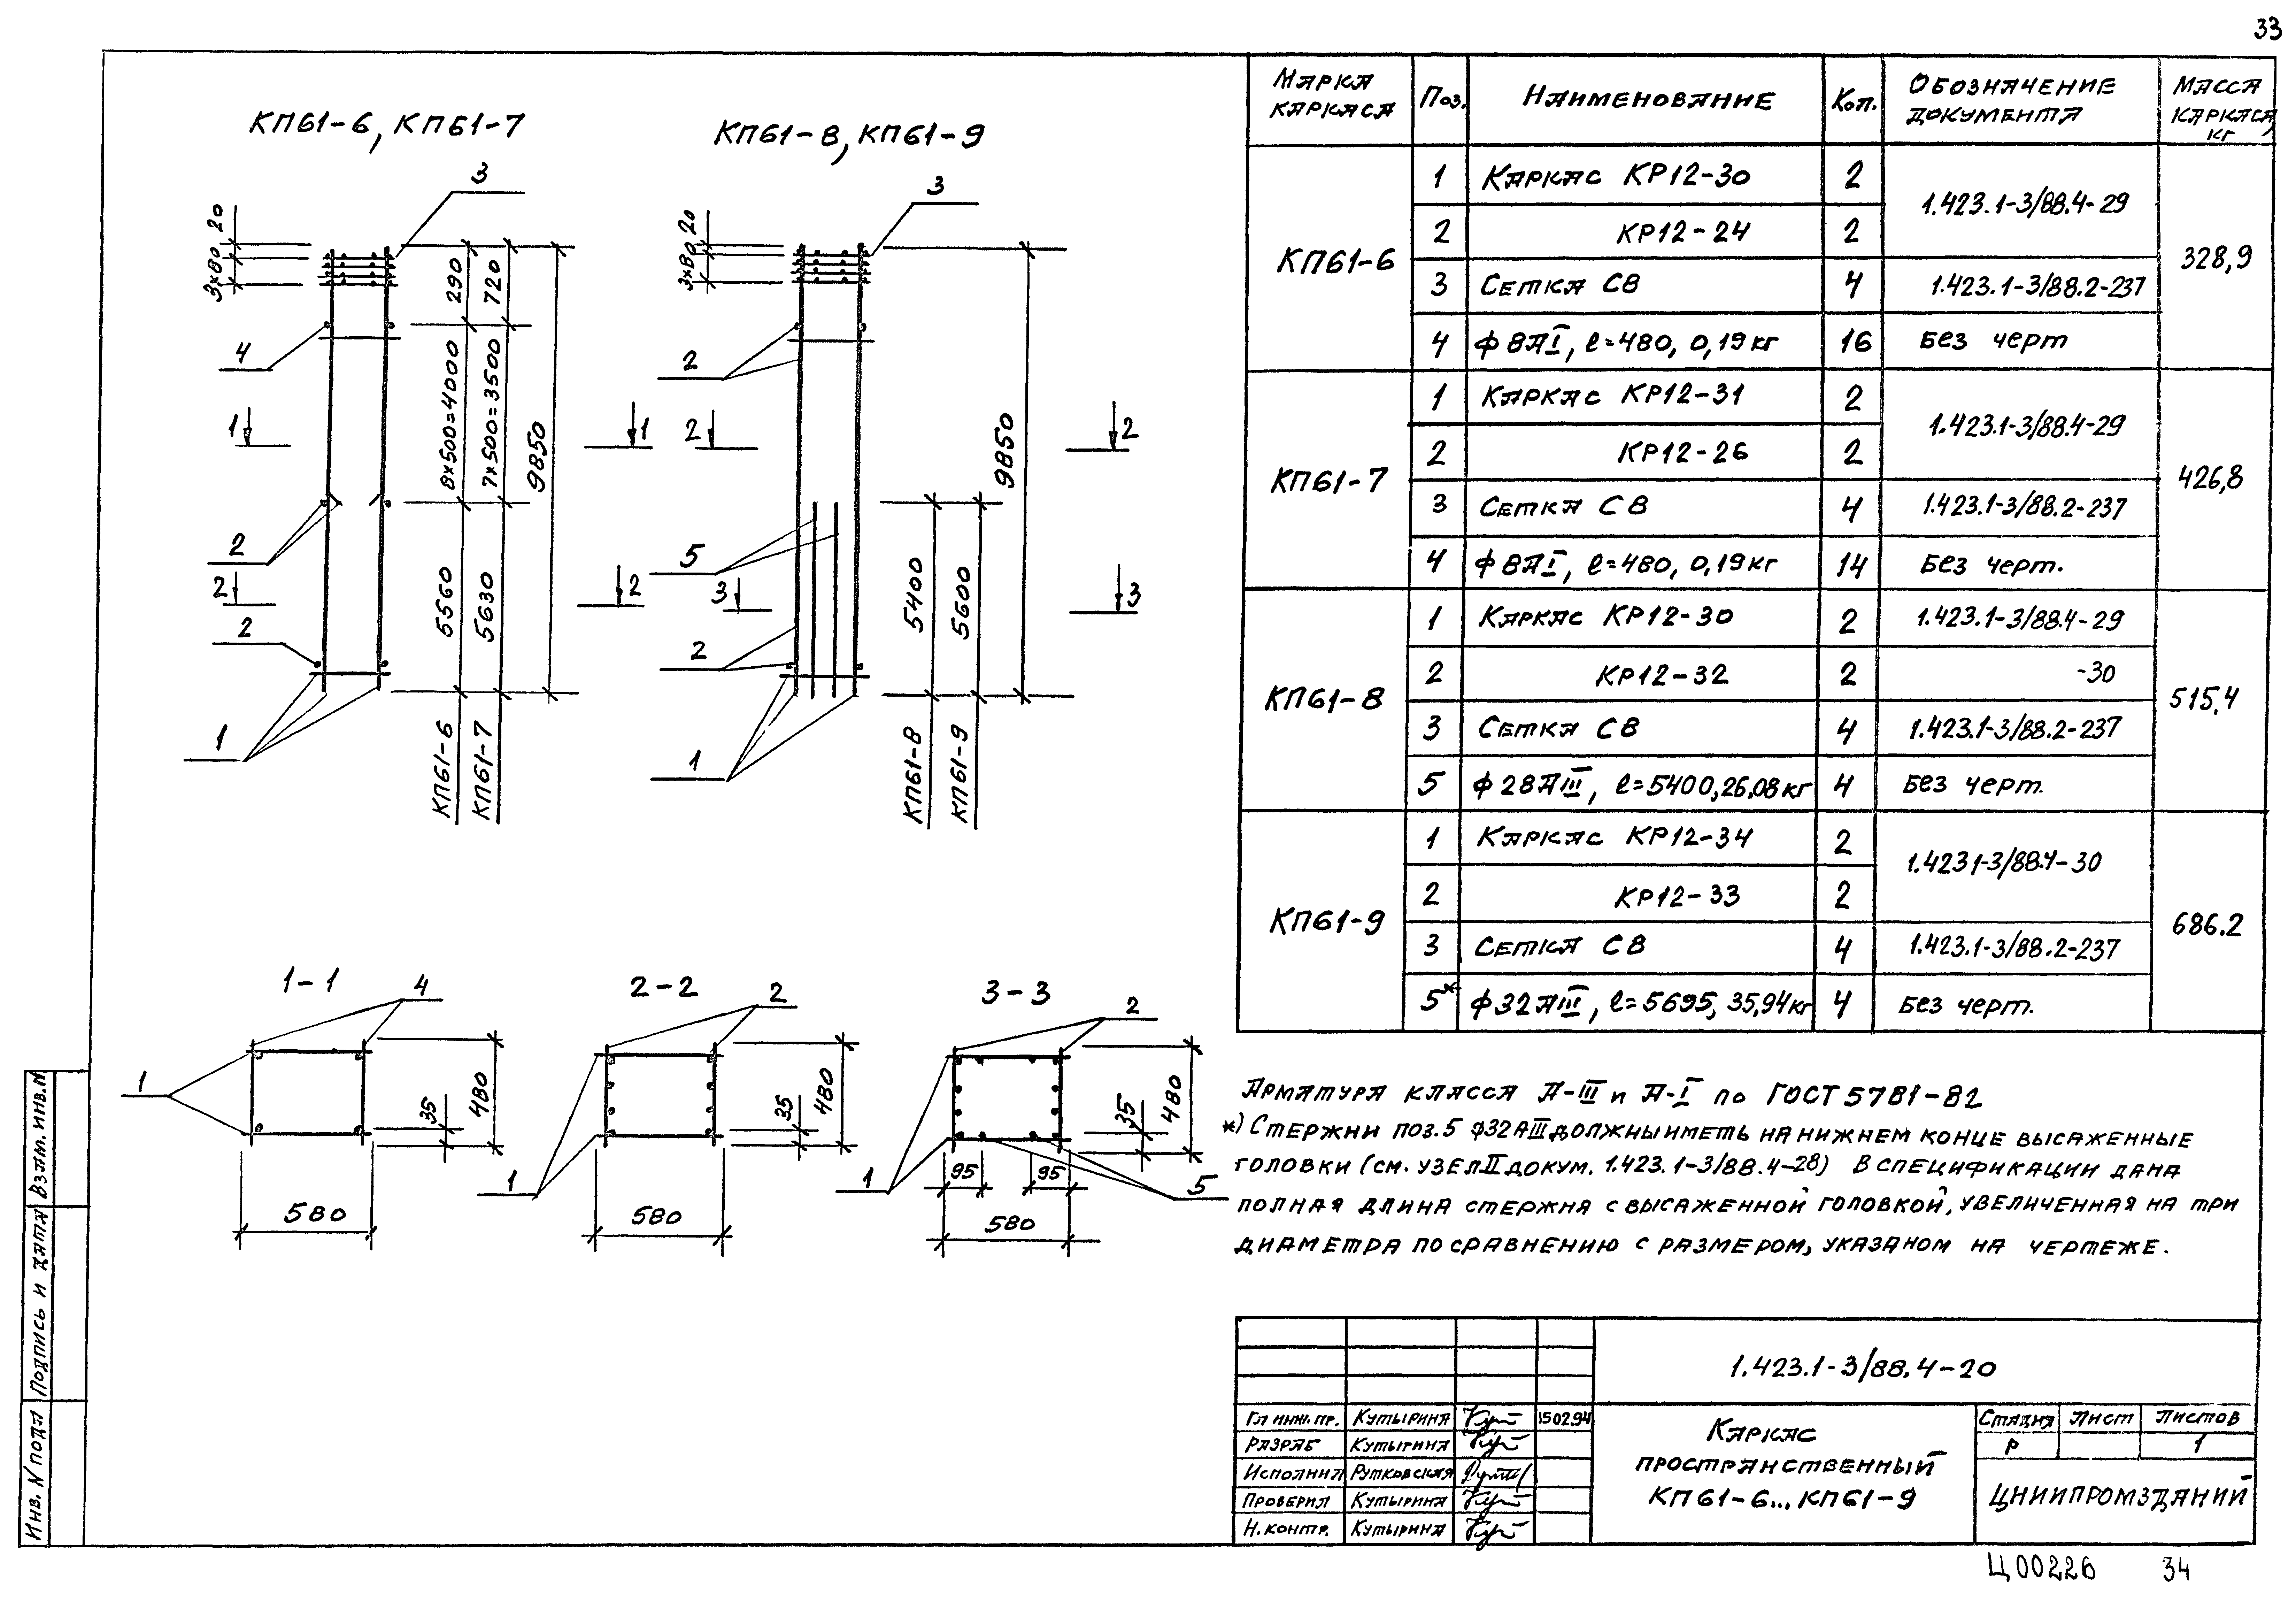 33
КП61-6, КП61-7
3
20
3×80
290
720
8×500=4000
7×500=3500
9850
4
1
1
2
2
2
2
5560
5630
1
КП61-6
КП61-7
КП61-8, КП61-9
3
20
3×80
2
2
2
9850
5
3
3
5400
5600
2
1
КП61-8
КП61-9
1-1
4
1
35
480
580
2-2
2
1
35
480
580
3-3
2
1
35
480
95
95
5
580
Марка каркаса
Поз.
Наименование
Кол.
Обозначение документа
Масса каркаса, кг
КП61-6
1 Каркас КР12-30 2 1.423.1-3/88.4-29
2 КР12-24 2
3 Сетка С8 4 1.423.1-3/88.2-237
4 ф8АI, l=480, 0,19кг 16 Без черт
328,9
КП61-7
1 Каркас КР12-31 2 1.423.1-3/88.4-29
2 КР12-26 2
3 Сетка С8 4 1.423.1-3/88.2-237
4 ф8АI, l=480, 0,19кг 14 Без черт.
426,8
КП61-8
1 Каркас КР12-30 2 1.423.1-3/88.4-29
2 КР12-32 2 -30
3 Сетка С8 4 1.423.1-3/88.2-237
5 ф28АIII, l=5400, 26.08кг 4 Без черт.
515,4
КП61-9
1 Каркас КР12-34 2 1.4231-3/88.4-30
2 КР12-33 2
3 Сетка С8 4 1.423.1-3/88.2-237
5* ф32АIII, l=5695, 35,94кг 4 Без черт.
686.2
Арматура класса А-III и А-I по ГОСТ 5781-82
*) Стержни поз.5 ф32АIII должны иметь на нижнем конце высаженные
головки (см. узел II докум. 1.423.1-3/88.4-28) В спецификации дана
полная длина стержня с высаженной головкой, увеличенная на три
диаметра по сравнению с размером, указаном на чертеже.
1.423.1-3/88.4-20
Гл инж. пр. Кутырина 1502.94
Разраб Кутырина
Исполнил Рутковская
Проверил Кутырина
Н. контр. Кутырина
Каркас
пространственный
КП61-6...КП61-9
Стадия Лист Листов
Р 1
ЦНИИПРОМЗДАНИЙ
Инв. N подл
Подпись и дата
Взам. инв. N
Ц00226 34